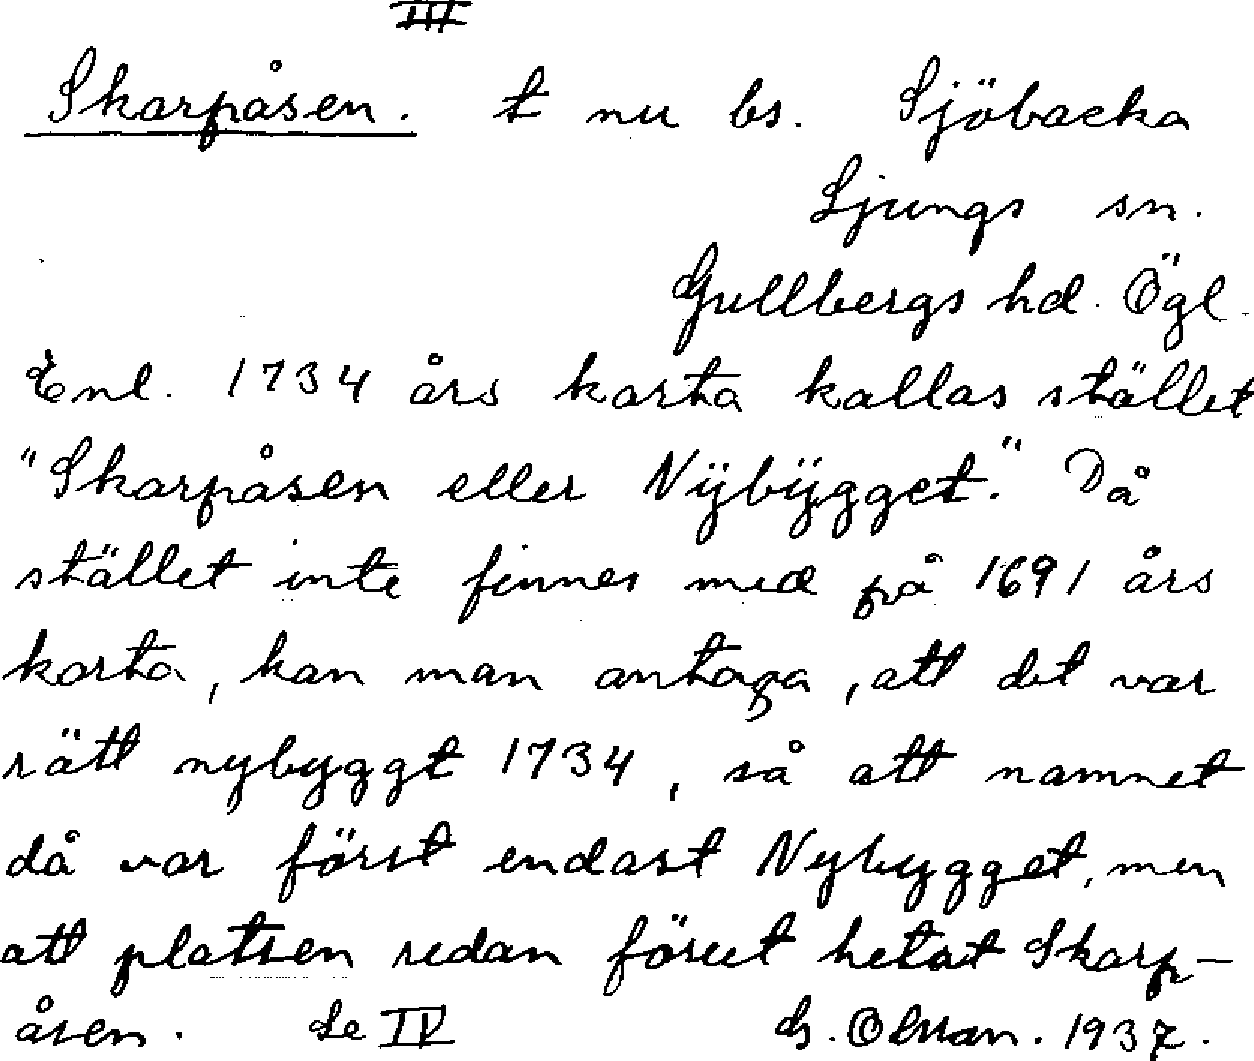 III
Skarpåsen. t nu bs. Sjöbacka
Ljungs sn.
Gullbergs hd. Ögl.
Enl. 1734 års karta kallas stället
"Skarpåsen eller Nÿbÿgget." Då
stället inte finnes med på 1691 års
karta, kan man antaga, att det var
rätt nybyggt 1734, så att namnet
då var först endast Nybygget, men
att platsen redan förut hetat Skarp-
åsen. Se IV G. Olsson. 1937.